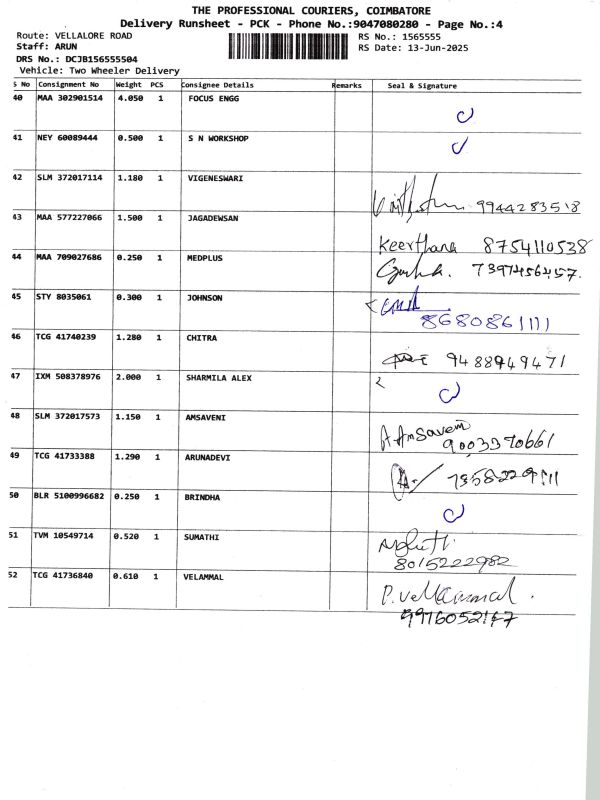 THE PROFESSIONAL COURIERS, COIMBATORE
Delivery Runsheet - PCK - Phone No.:9047080280 - Page No.:4
Route: VELLALORE ROAD RS No.: 1565555
Staff: ARUN RS Date: 13-Jun-2025
DRS No.: DCJB156555504
Vehicle: Two Wheeler Delivery
S No Consignment No Weight PCS Consignee Details Remarks Seal & Signature
40 MAA 302901514 4.050 1 FOCUS ENGG
41 NEY 60089444 0.500 1 S N WORKSHOP
42 SLM 372017114 1.180 1 VIGENESWARI
9944283518
43 MAA 577227066 1.500 1 JAGADEWSAN
Keerthana 8754110538
44 MAA 709027686 0.250 1 MEDPLUS
7397456457.
45 STY 8035061 0.300 1 JOHNSON
8680861111
46 TCG 41740239 1.280 1 CHITRA
9488949471
47 IXM 508378976 2.000 1 SHARMILA ALEX
48 SLM 372017573 1.150 1 AMSAVENI
A Amsaveni
9003370661
49 TCG 41733388 1.290 1 ARUNADEVI
50 BLR 5100996682 0.250 1 BRINDHA
51 TVM 10549714 0.520 1 SUMATHI
8015222982
52 TCG 41736840 0.610 1 VELAMMAL
P. Vellammal.
9976052147